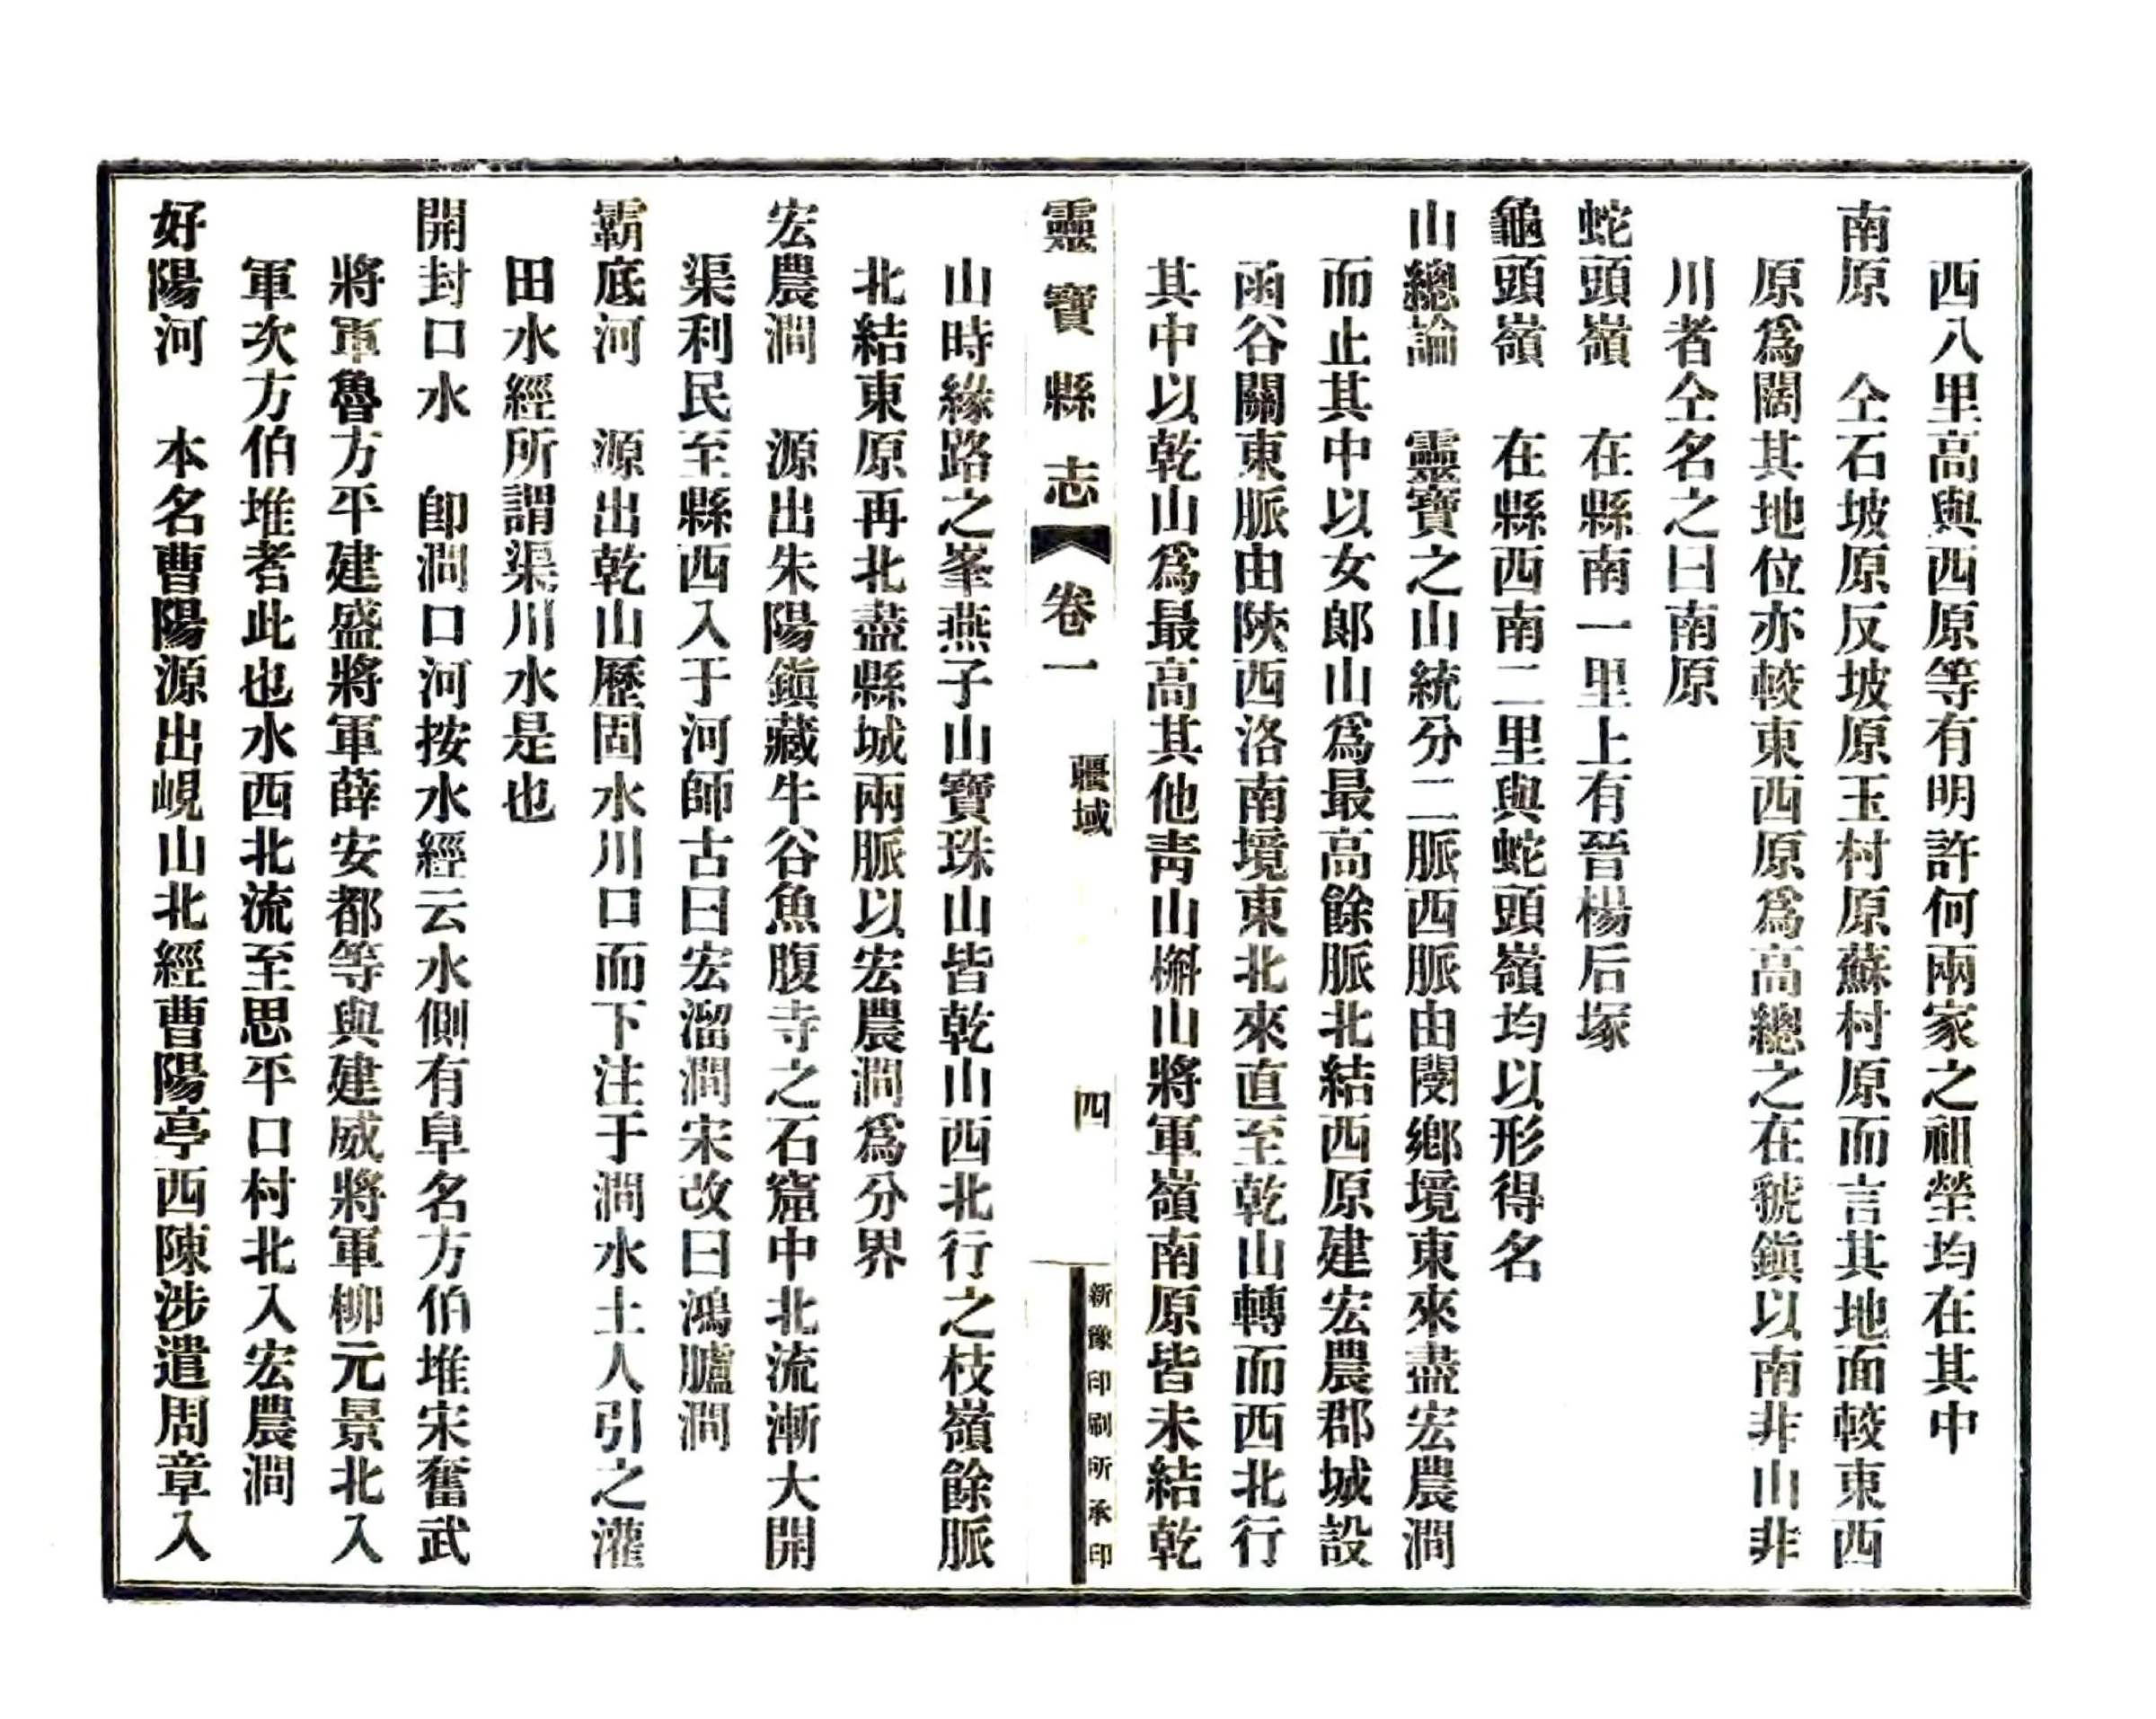 西八里高與西原等有明許何兩家之祖塋均在其中
南原　仝石坡原反坡原玉村原蘇村原而言其地面較東西
原爲闊其地位亦較東西原爲高總之在虢鎭以南非山非
川者仝名之曰南原
蛇頭嶺　在縣南一里上有晉楊后塚
龜頭嶺　在縣西南二里與蛇頭嶺均以形得名
山總論　靈寶之山統分二脈西脈由閿鄉境東來盡宏農澗
而止其中以女郞山爲最高餘脈北結西原建宏農郡城設
函谷關東脈由陝西洛南境東北來直至乾山轉而西北行
其中以乾山爲最高其他靑山槲山將軍嶺南原皆未結乾
靈寶縣志　卷一　疆域　四　新豫印刷所承印
山時緣路之峯燕子山寶珠山皆乾山西北行之枝嶺餘脈
北結東原再北盡縣城兩脈以宏農澗爲分界
宏農澗　源出朱陽鎭藏牛谷魚腹寺之石窟中北流漸大開
渠利民至縣西入于河師古曰宏溜澗宋改曰鴻臚澗
霸底河　源出乾山歷固水川口而下注于澗水土人引之灌
田水經所謂渠川水是也
開封口水　卽澗口河按水經云水側有阜名方伯堆宋奮武
將軍魯方平建盛將軍薛安都等與建威將軍柳元景北入
軍次方伯堆者此也水西北流至思平口村北入宏農澗
好陽河　本名曹陽源出峴山北經曹陽亭西陳涉遣周章入